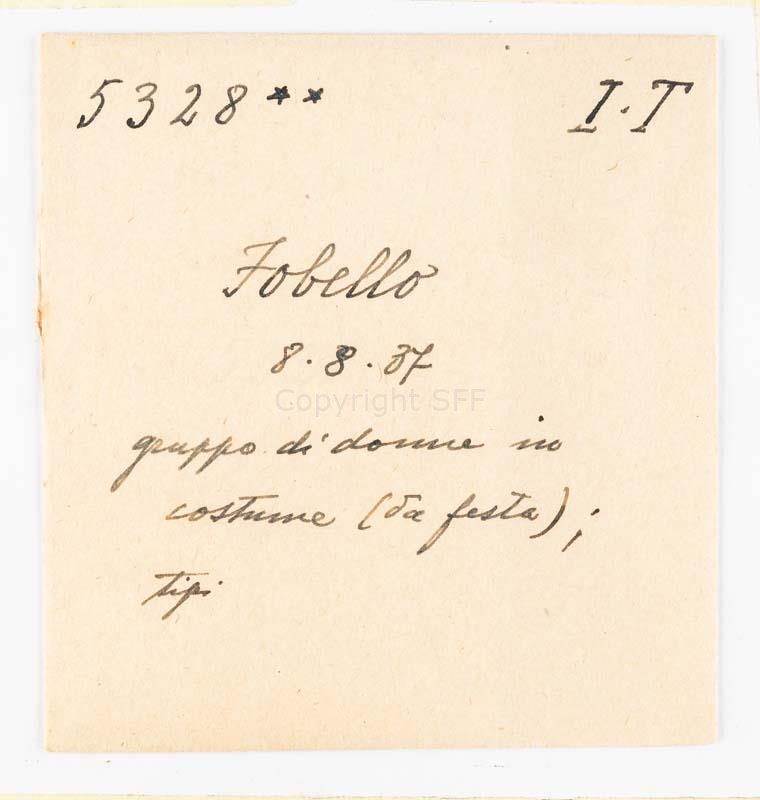 5328** I.T
Fobello
8.8.37
Copyright SFF
gruppo di donne in
costume (da festa);
tipi